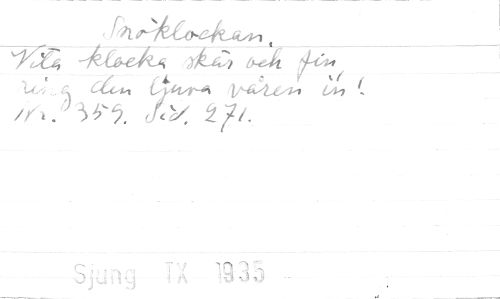 Snöklockan.
Vita klocka skär och fin,
ring den ljuva våren in!
Nr. 359. Sid. 271.
Sjung TX 1935